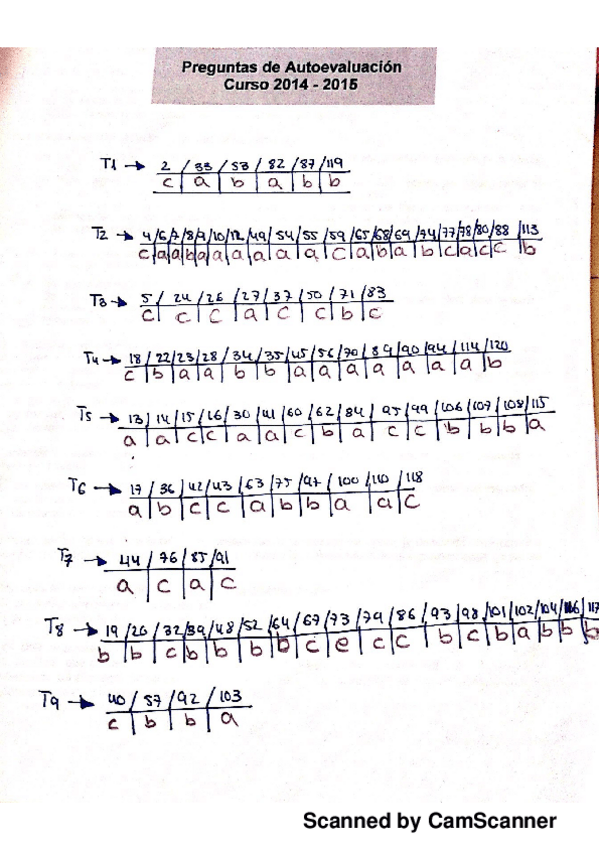 Preguntas de Autoevaluación
Curso 2014 - 2015
T1 → 2 / 33 / 53 / 82 / 87 / 119
c | a | b | a | b | b
T2 → 4/6/7/8/9/10/12/49/54/55/59/65/68/69/74/77/78/80/88/113
c|a|a|b|a|a|a|a|a|a|c|a|b|a|b|c|a|c|c|b
T3 → 5/24/26/27/37/50/71/83
c|c|c|a|c|c|b|c
T4 → 18/22/23/28/34/35/45/56/70/89/90/94/114/120
c|b|a|a|b|b|a|a|a|a|a|a|a|b
T5 → 13/14/15/16/30/41/60/62/84/95/99/106/107/108/115
a|a|c|c|a|a|c|b|a|c|c|b|b|b|a
T6 → 17/36/42/43/63/75/97/100/110/118
a|b|c|c|a|b|b|a|a|c
T7 → 44/76/85/91
a|c|a|c
T8 → 19/20/32/39/48/52/64/67/73/79/86/93/98/101/102/104/116/117
b|b|c|b|b|b|b|c|c|c|c|b|c|b|a|b|b|b
T9 → 40/57/92/103
c|b|b|a
Scanned by CamScanner